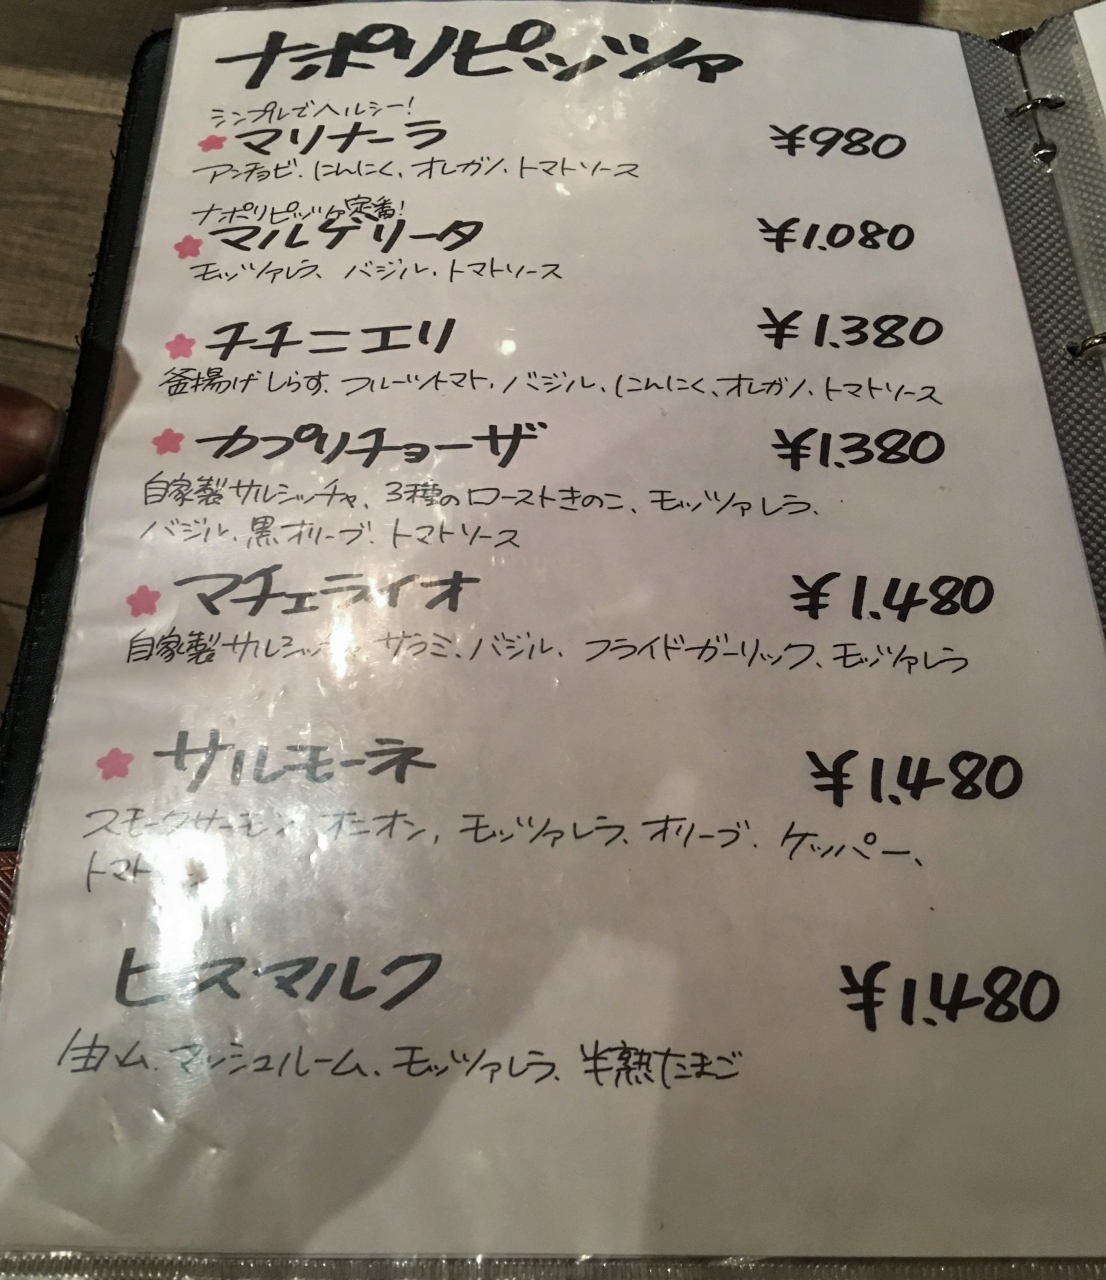 ナポリピッツァ
シンプルでヘルシー!
マリナーラ ¥980
アンチョビ、にんにく、オレガノ、トマトソース
ナポリピッツァ定番!
マルゲリータ ¥1.080
モッツァレラ、バジル、トマトソース
チチニエリ ¥1.380
釜揚げしらす、フルーツトマト、バジル、にんにく、オレガノ、トマトソース
カプリチョーザ ¥1.380
自家製サルシッチャ、3種のローストきのこ、モッツァレラ、
バジル、黒オリーブ、トマトソース
マチェライオ ¥1.480
自家製サルシッチャ サラミ、バジル、フライドガーリック、モッツァレラ
サルモーネ ¥1.480
スモークサーモン オニオン、モッツァレラ、オリーブ、ケッパー、
トマト
ビスマルク ¥1.480
マッシュルーム、モッツァレラ、半熟たまご